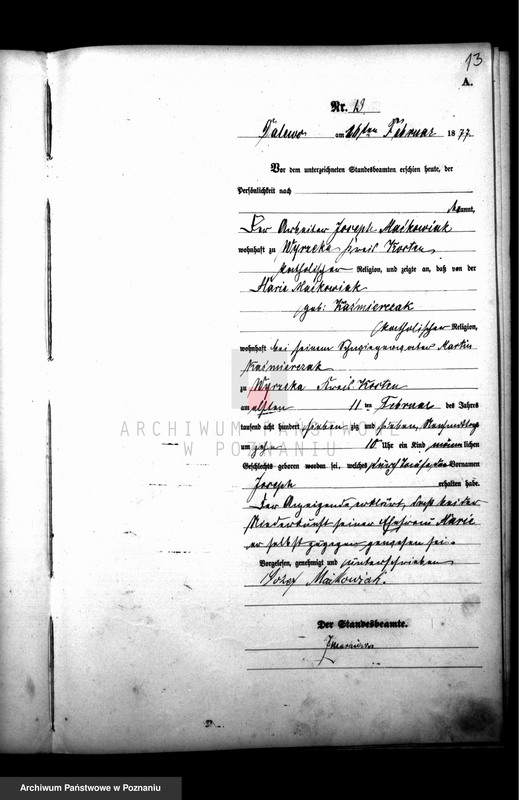 13
A.
Nr. 13
am 16ten Februar 1877.
Vor dem unterzeichneten Standesbeamten erschien heute, der
Persönlichkeit nach
kannt,
Der Arbeiter Joseph Maikowiak
wohnhaft zu Wyrzeka Kreis Kosten
katholischer Religion, und zeigte an, daß von der
Marie Maikowiak
geb: Kaśmierczak
katholischer Religion,
wohnhaft bei seinem Schwiegervater Martin
Kaśmierczak
zu Wyrzeka Kreis Kosten
am elften 11 ten Februar des Jahres
tausend acht hundert sieben zig und sieben, Nachmittags
um zehn 10 Uhr ein Kind männlichen
Geschlechts geboren worden sei, welches Vornamen
Joseph erhalten habe.
Der Anzeigende erklärt, daß bei der
Niederkunft seiner Ehefrau Marie
er selbst zugegen gewesen sei.
Vorgelesen, genehmigt und unterschrieben
Jozef Maikowiak.
Der Standesbeamte.
ARCHIWUM PAŃSTWOWE
W POZNANIU
Archiwum Państwowe w Poznaniu